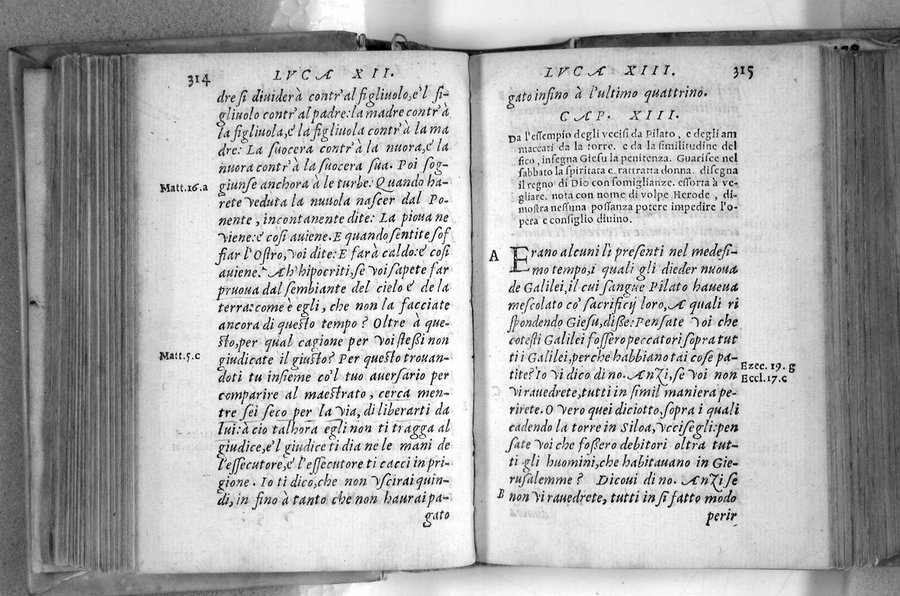 314
LVCA XII.
dre si diuiderà contr'al figliuolo,e'l fi-
gliuolo contr'al padre:la madre contr'à
la figliuola,e la figliuola contr'à la ma
dre: La suocera contr'à la nuora,e la
nuora contr'à la suocera sua. Poi sog-
Matt.16.a
giunse anchora à le turbe: Quando ha-
rete veduta la nuuola nascer dal Po-
nente , incontanente dite: La pioua ne
viene:e cosi auiene. E quando sentite sof
fiar l'Ostro, voi dite: E farà caldo:e cosi
auiene. Ah hipocriti,se voi sapete far
pruoua dal sembiante del cielo e de la
terra:come è egli, che non la facciate
ancora di questo tempo ? Oltre à que-
sto,per qual cagione per voi stessi non
Matt.5.c
giudicate il giusto? Per questo trouan-
doti tu insieme co'l tuo auersario per
comparire al maestrato , cerca men-
tre sei seco per la via, di liberarti da
lui:à cio talhora egli non ti tragga al
giudice,e'l giudice ti dia ne le mani de
l'essecutore,e l'essecutore ti cacci in pri-
gione . Io ti dico,che non vscirai quin-
di, in fino à tanto che non haurai pa-
gato
LVCA XIII.
315
gato infino à l'ultimo quattrino.
CAP. XIII.
Da l'essempio degli vccisi da Pilato , e degli am
maccati da la torre. e da la similitudine del
fico, insegna Giesu la penitenza. Guarisce nel
sabbato la spiritata e rattratta donna. disegna
il regno di Dio con somiglianze. essorta à ve-
gliare. nota con nome di volpe Herode , di-
mostra nessuna possanza potere impedire l'o-
pera e consiglio diuino.
A
Erano alcuni lì presenti nel medesi-
mo tempo,i quali gli dieder nuoua
de Galilei,il cui sangue Pilato haueua
mescolato co' sacrificij loro, A quali ri
spondendo Giesu,disse: Pensate voi che
cotesti Galilei fossero peccatori sopra tut
ti i Galilei,perche habbiano tai cose pa-
Ezec. 19. g
tite? Io vi dico di no. Anzi,se voi non
Eccl.17.c
vi rauedrete,tutti in simil maniera pe-
rirete. O vero quei diciotto,sopra i quali
cadendo la torre in Siloa,vccise gli:pen
sate voi che fossero debitori oltra tut-
ti gli huomini,che habitauano in Gie-
rusalemme ? Dicoui di no. Anzi se
B
non vi rauedrete, tutti in si fatto modo
perir